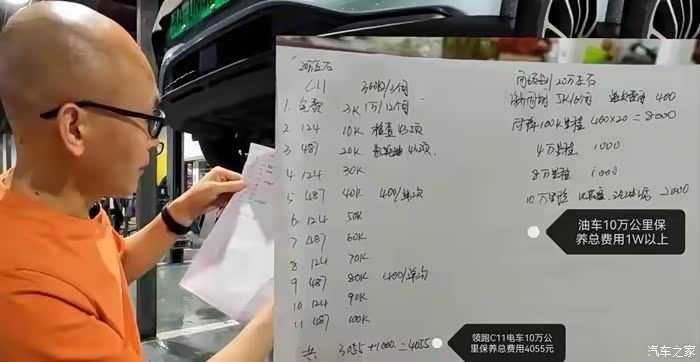 20万左右
C11
1. 免费 3K 1万/12个月
2 124 10K 检查45项
3 487 20K
4 124 30K
5 487 40K 400/单次
6 124 50K
7 487 60K
8 124 70K
9 487 80K 400/单次
10 124 90K
11 487 100K
共 3055+1000=4055
同级别 20万左右
5K/6个月 单次费用 400
100K里程 400×20=8000
4万里程 1000
8万里程 1000
10万里程 2000
油车10万公里保
养总费用1W以上
领跑C11电车10万公
里保养总费用4055元
汽车之家